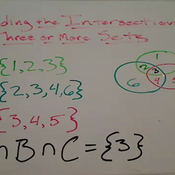 ding the Intersection
Three or More Sets
{1,2,3}
{2,3,4,6}
{3,4,5}
∩B∩C={3}
1
2
3
4
5
6